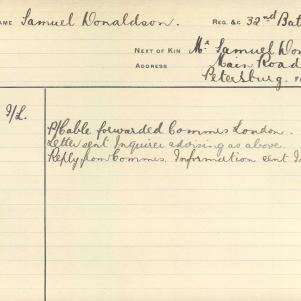 NAME Samuel Donaldson. REG. &C 32nd Bat
NEXT OF KIN Mr Samuel Don
ADDRESS Main Road
Petersburg.
I/L.
P/Cable forwarded Commrs London.
Letter sent Inquirer advising as above.
Reply from Commrs. Information sent